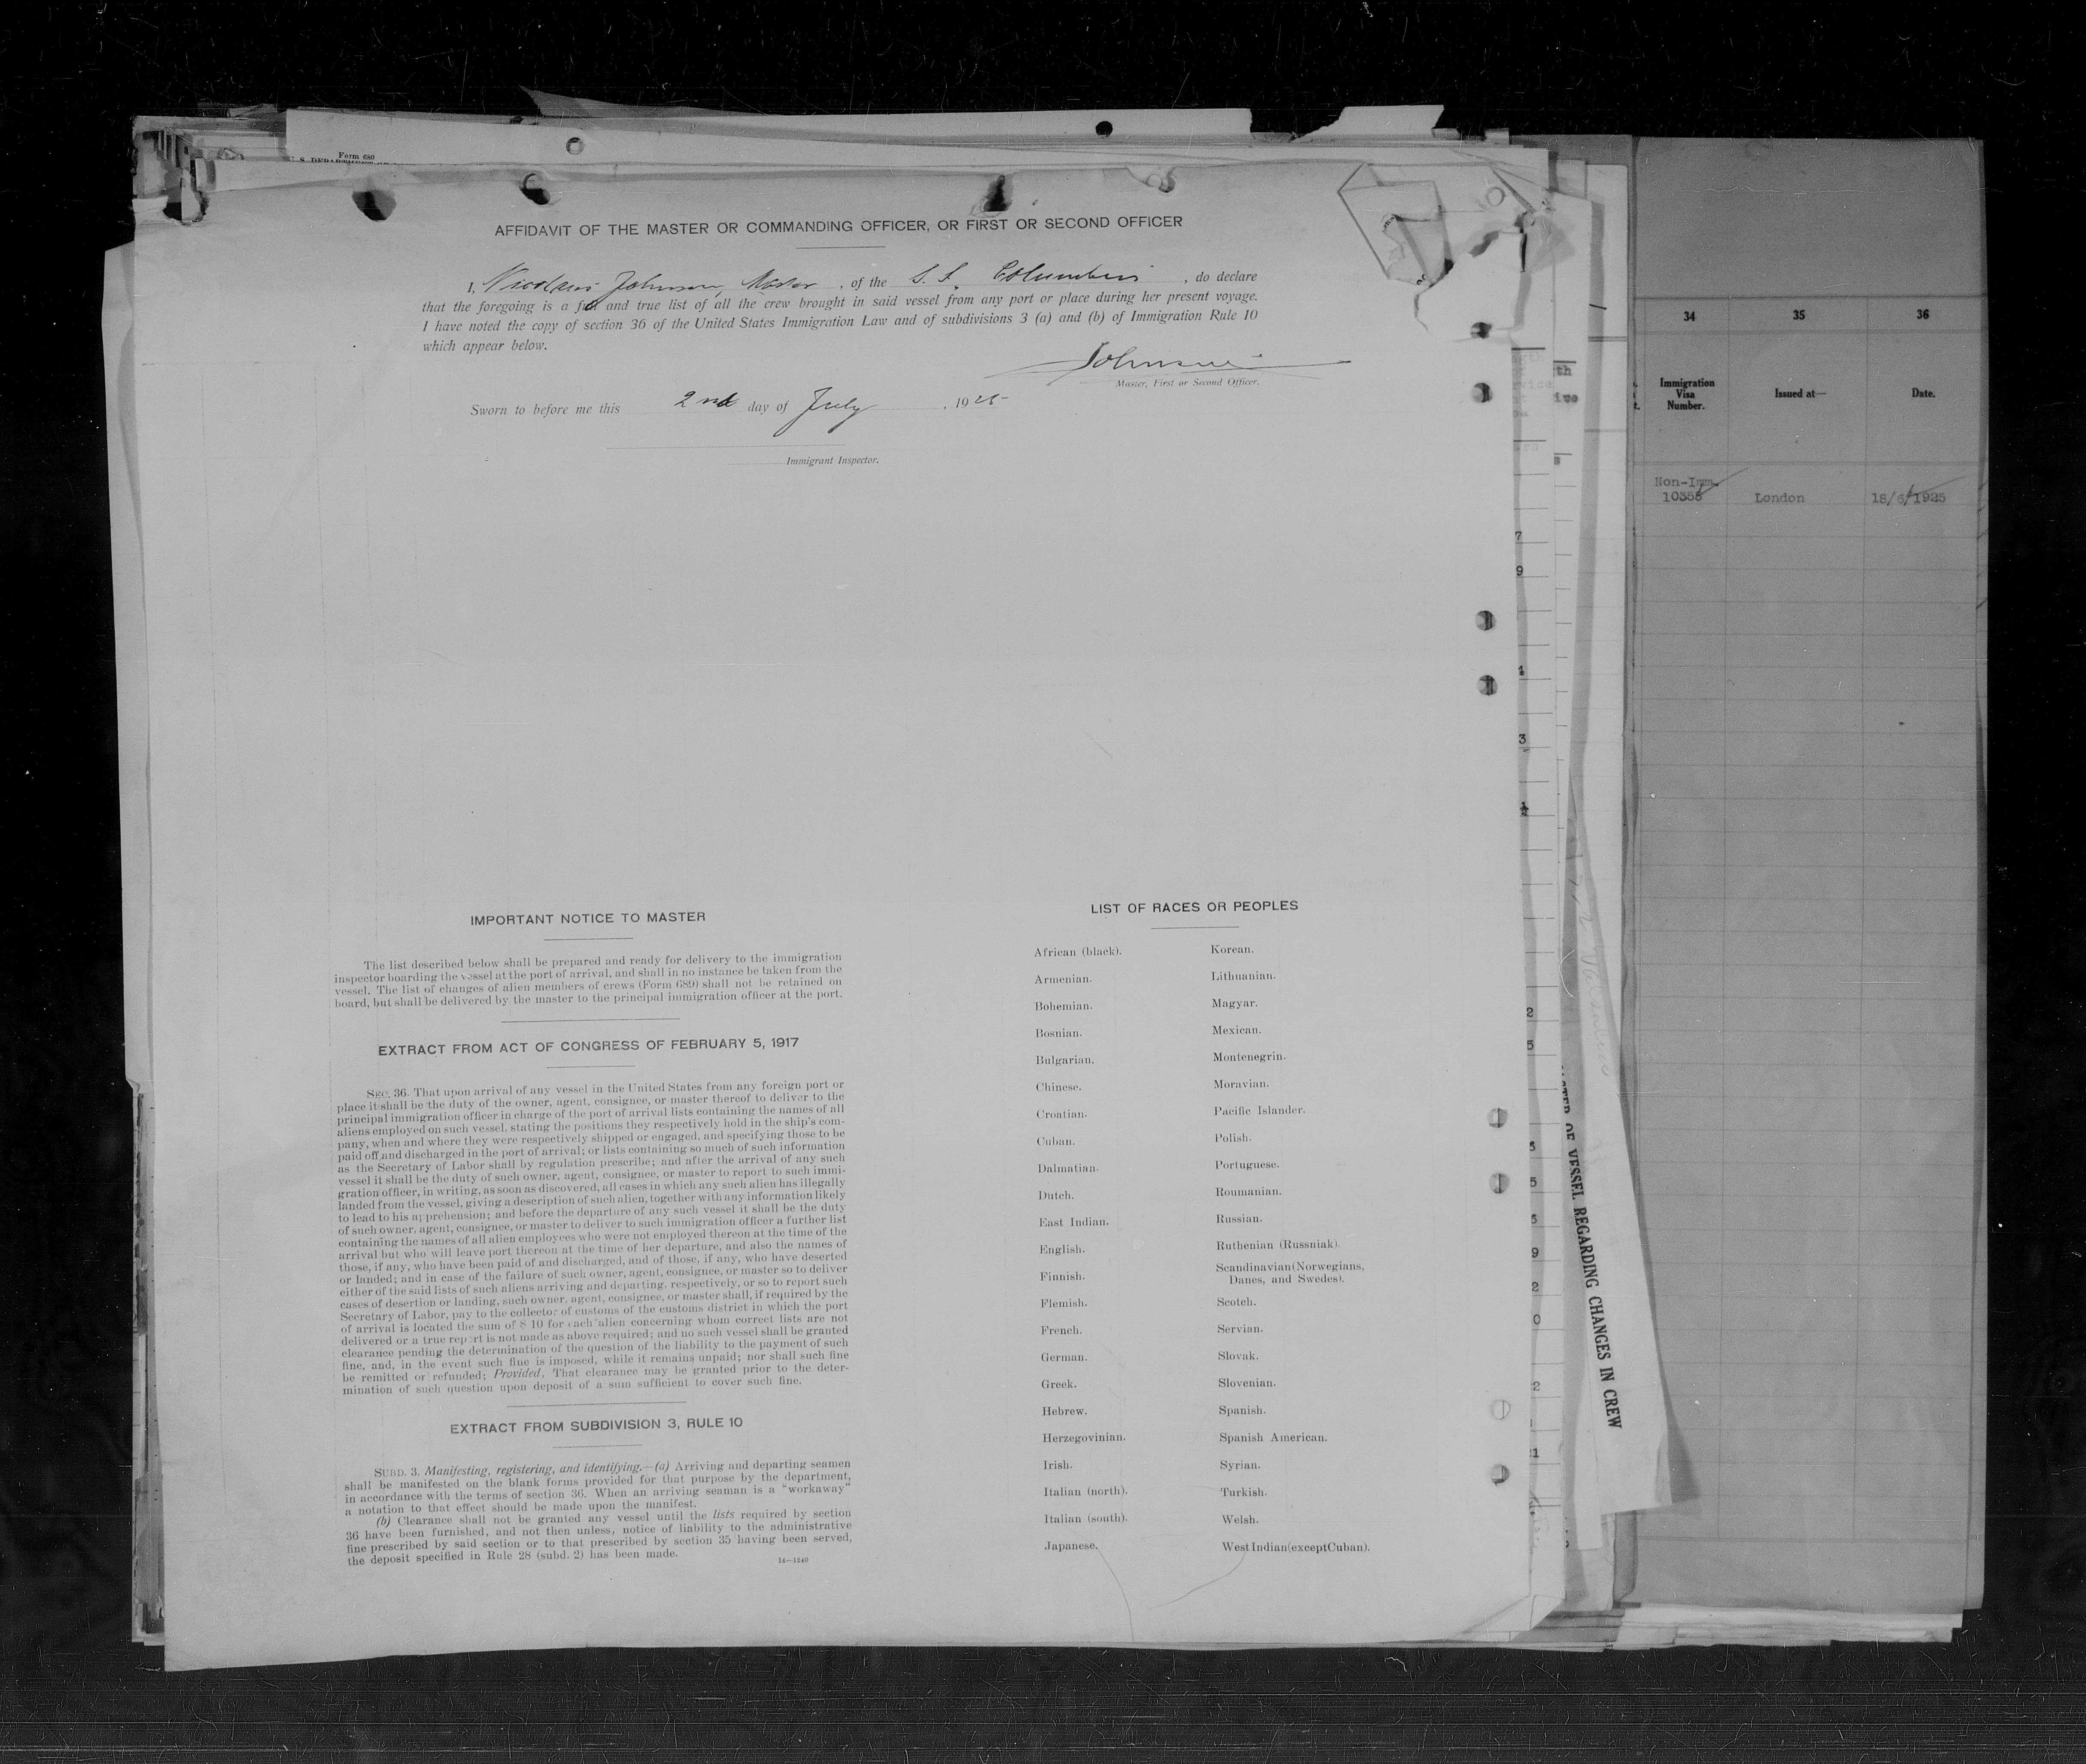 Form 680
AFFIDAVIT OF THE MASTER OR COMMANDING OFFICER, OR FIRST OR SECOND OFFICER
I, Nicolaus Johnsen, Master, of the S. S. Columbus, do declare
that the foregoing is a full and true list of all the crew brought in said vessel from any port or place during her present voyage.
I have noted the copy of section 36 of the United States Immigration Law and of subdivisions 3 (a) and (b) of Immigration Rule 10
which appear below.
Johnsen
Master, First or Second Officer.
Sworn to before me this 2nd day of July, 1925
Immigrant Inspector.
IMPORTANT NOTICE TO MASTER
The list described below shall be prepared and ready for delivery to the immigration
inspector boarding the vessel at the port of arrival, and shall in no instance be taken from the
vessel. The list of changes of alien members of crews (Form 689) shall not be retained on
board, but shall be delivered by the master to the principal immigration officer at the port.
EXTRACT FROM ACT OF CONGRESS OF FEBRUARY 5, 1917
SEC. 36. That upon arrival of any vessel in the United States from any foreign port or
place it shall be the duty of the owner, agent, consignee, or master thereof to deliver to the
principal immigration officer in charge of the port of arrival lists containing the names of all
aliens employed on such vessel, stating the positions they respectively hold in the ship's com-
pany, when and where they were respectively shipped or engaged, and specifying those to be
paid off and discharged in the port of arrival; or lists containing so much of such information
as the Secretary of Labor shall by regulation prescribe; and after the arrival of any such
vessel it shall be the duty of such owner, agent, consignee, or master to report to such immi-
gration officer, in writing, as soon as discovered, all cases in which any such alien has illegally
landed from the vessel, giving a description of such alien, together with any information likely
to lead to his apprehension; and before the departure of any such vessel it shall be the duty
of such owner, agent, consignee, or master to deliver to such immigration officer a further list
containing the names of all alien employees who were not employed thereon at the time of the
arrival but who will leave port thereon at the time of her departure, and also the names of
those, if any, who have been paid of and discharged, and of those, if any, who have deserted
or landed; and in case of the failure of such owner, agent, consignee, or master so to deliver
either of the said lists of such aliens arriving and departing, respectively, or so to report such
cases of desertion or landing, such owner, agent, consignee, or master shall, if required by the
Secretary of Labor, pay to the collector of customs of the customs district in which the port
of arrival is located the sum of $ 10 for each alien concerning whom correct lists are not
delivered or a true report is not made as above required; and no such vessel shall be granted
clearance pending the determination of the question of the liability to the payment of such
fine, and, in the event such fine is imposed, while it remains unpaid; nor shall such fine
be remitted or refunded; Provided, That clearance may be granted prior to the deter-
mination of such question upon deposit of a sum sufficient to cover such fine.
EXTRACT FROM SUBDIVISION 3, RULE 10
SUBD. 3. Manifesting, registering, and identifying.—(a) Arriving and departing seamen
shall be manifested on the blank forms provided for that purpose by the department,
in accordance with the terms of section 36. When an arriving seaman is a "workaway"
a notation to that effect should be made upon the manifest.
(b) Clearance shall not be granted any vessel until the lists required by section
36 have been furnished, and not then unless, notice of liability to the administrative
fine prescribed by said section or to that prescribed by section 35 having been served,
the deposit specified in Rule 28 (subd. 2) has been made.
14—1240
LIST OF RACES OR PEOPLES
African (black).
Armenian.
Bohemian.
Bosnian.
Bulgarian.
Chinese.
Croatian.
Cuban.
Dalmatian.
Dutch.
East Indian.
English.
Finnish.
Flemish.
French.
German.
Greek.
Hebrew.
Herzegovinian.
Irish.
Italian (north).
Italian (south).
Japanese.
Korean.
Lithuanian.
Magyar.
Mexican.
Montenegrin.
Moravian.
Pacific Islander.
Polish.
Portuguese.
Roumanian.
Russian.
Ruthenian (Russniak).
Scandinavian (Norwegians,
Danes, and Swedes).
Scotch.
Servian.
Slovak.
Slovenian.
Spanish.
Spanish American.
Syrian.
Turkish.
Welsh.
West Indian (except Cuban).
OF VESSEL REGARDING CHANGES IN CREW
34 35 36
Immigration Visa Number. Issued at— Date.
Non-Imm.
10358 London 18/6/1925